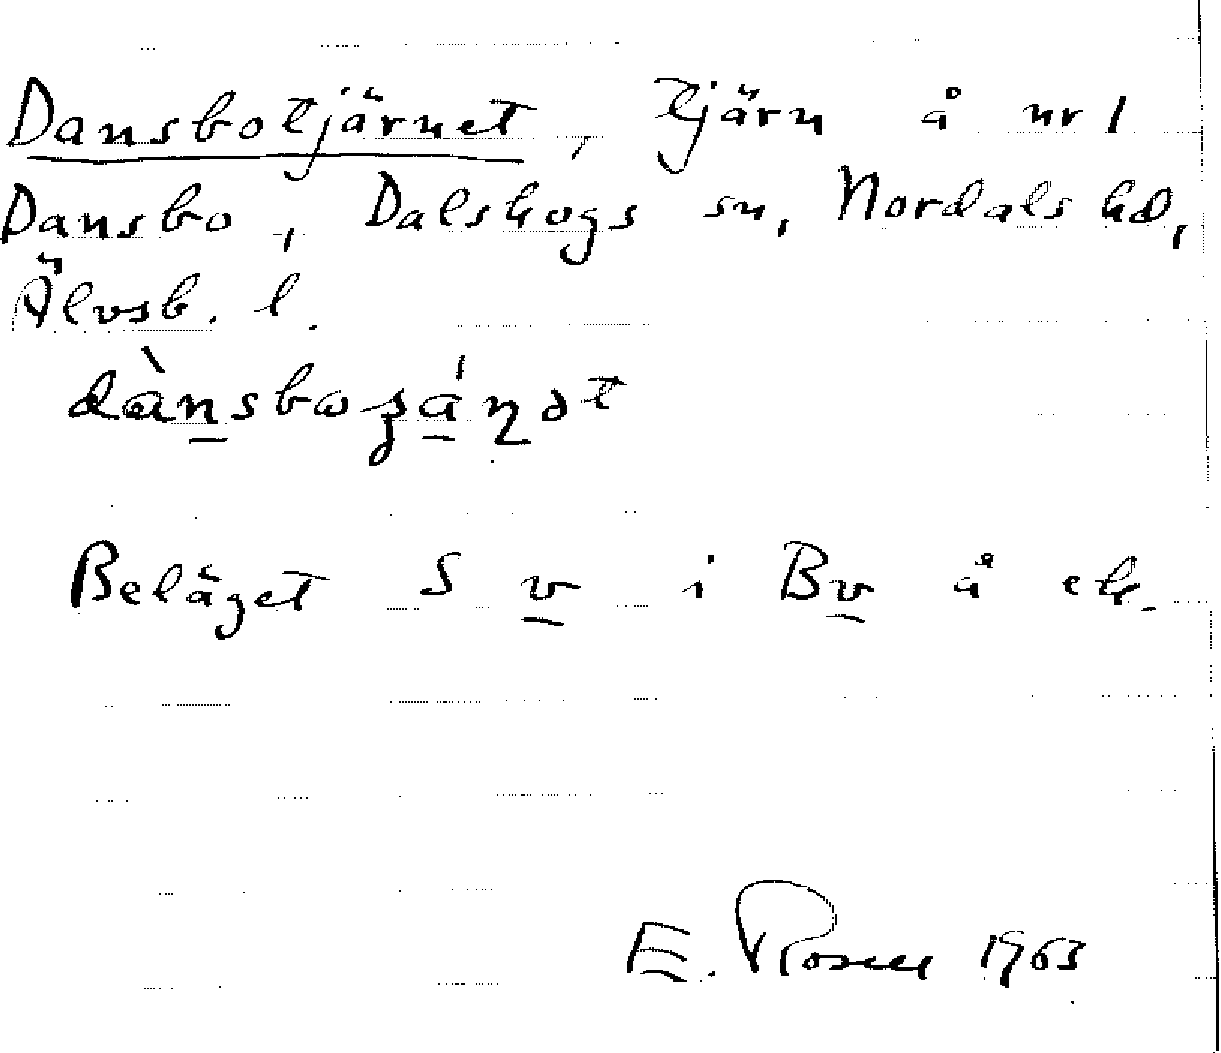 Dansbotjärnet, tjärn å nr 1
Dansbo, Dalskogs sn, Nordals hd,
Älvsb. l.
Beläget S v i Bv å ek.
E. Rosell 1963